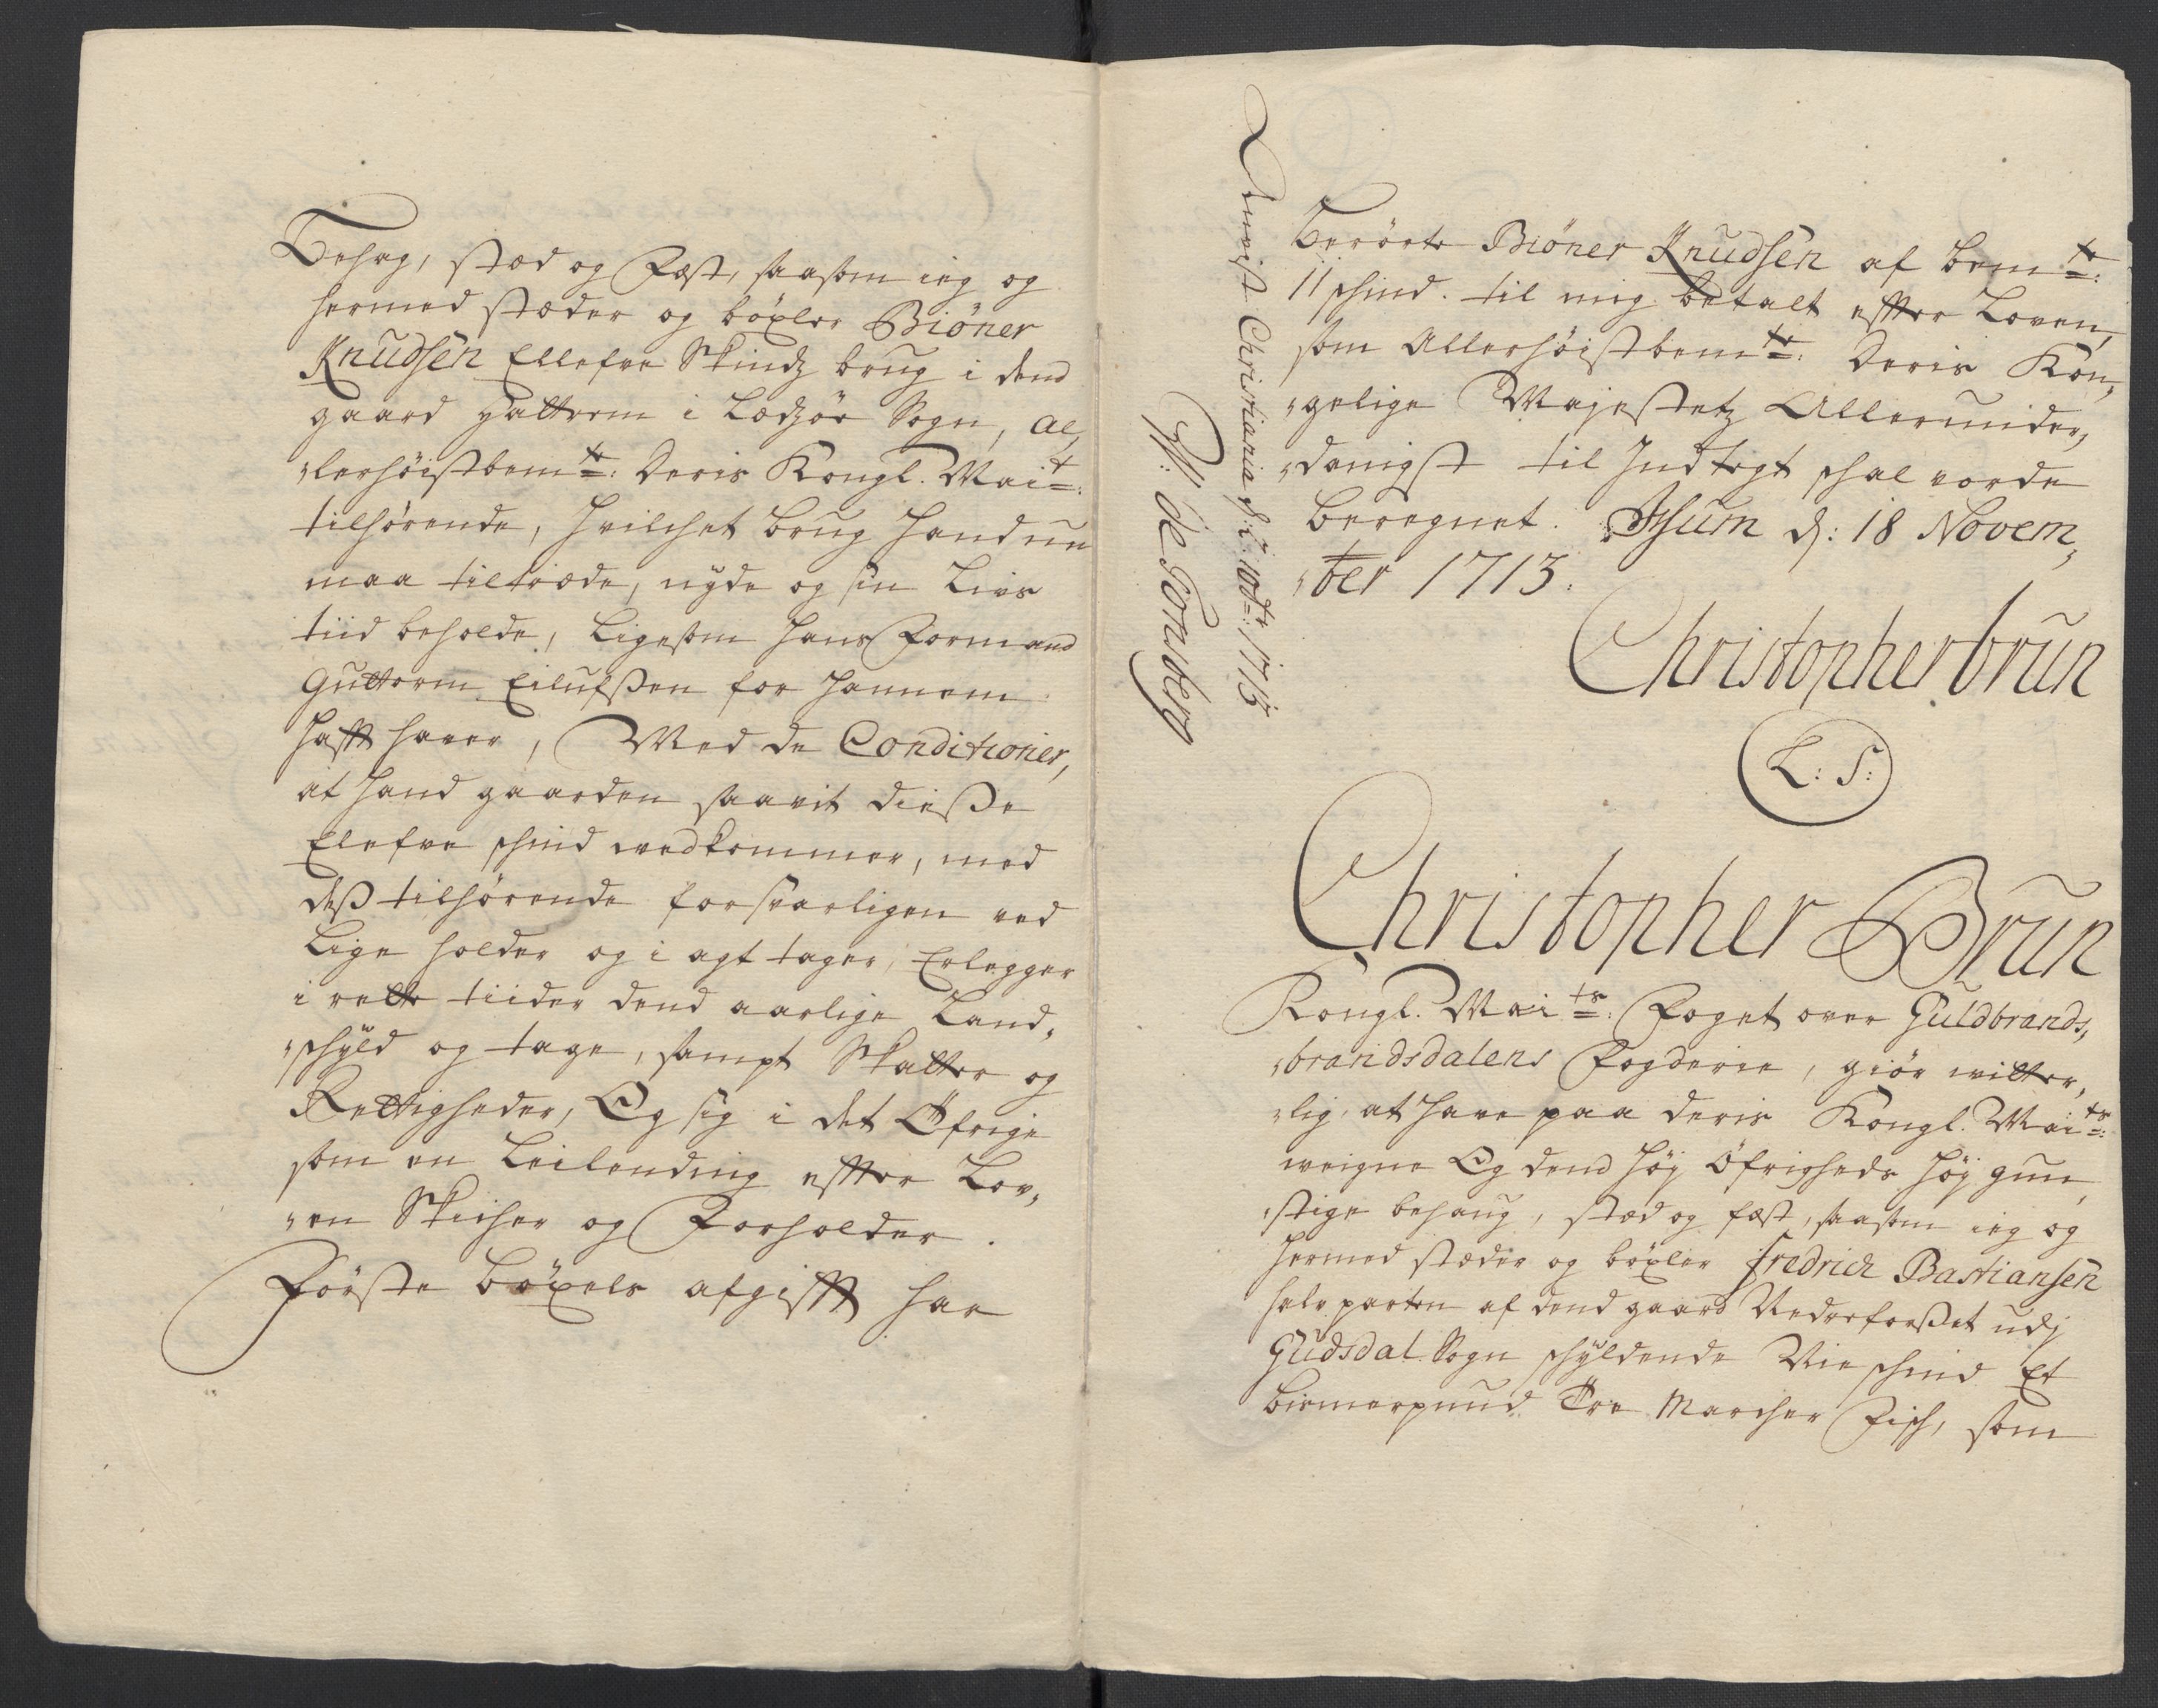 Behag, stæd og Fæst, saasom ieg og
hermed stæder og böxler Biöner
Knudsen Ellefve Skindz brug i dend
gaard i Lodzör Sogn, al,
„lerhöistbemte: Deris Kongl. Mait:
tilhörende, hvilchet brug hand nu
maa tiltræde, nyde og sin Livs
tiid beholde, Ligesom hans Formand
Guttorm Eilufßen for hannem
hafft haver, Med de Conditioner,
at hand gaarden saavit dieße
Elefve schind vedkommer, med
deß tilhörende forsvarligen ved
Lige holder og i agt tager, Erlegger
i rette tiider dend aarlige Land,
„schyld og tage, sampt Skatter og
Rettigheder, Og sig i det Öfrige
som en Leilending effter Lov,
„en Skicher og Forholder.
Förste böxels afgifft har
Anvist Christiania d: 2. 10br: 1715
W: de Tonsberg
Berörte Biöner Knudsen af bemte:
11 schind. til mig betalt effter Loven,
som Allerhöistbemte: Deris Kon,
„gelige Majestetz Allerunder,
„danigst til Indtegt schal vorde
beregnet. Isum d: 18 Novem,
„ber 1713:
Christopher brun
L: S:
Christopher Brun
Kongl. Maits: Foget over Guldbrands,
„brandsdalens Fogderie, giör witter,
„lig, at have paa deris Kongl. Maits:
weigne Og dend höy Öfrigheds höy gun,
„stige behaug, stæd og fæst, saasom ieg og
hermed stæder og böxler fredrich Bastiansen
halv parten af dend gaard Nedreforßet udj
Gudsdal Sogn schyldende Nie schind Et
bismerpund Tre Marcher Fisch, som